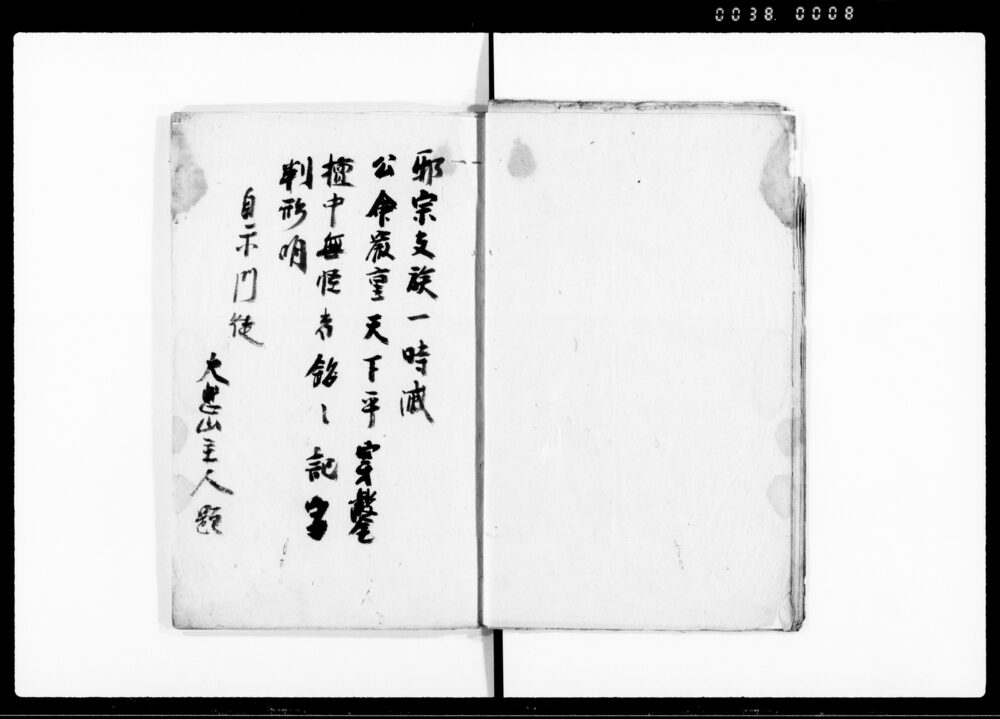 0038 0008
邪宗支族一時滅
公命嚴重天下平穿鑿
檀中無怪者銘〻記字
判形明
自示門徒
大思山主人題